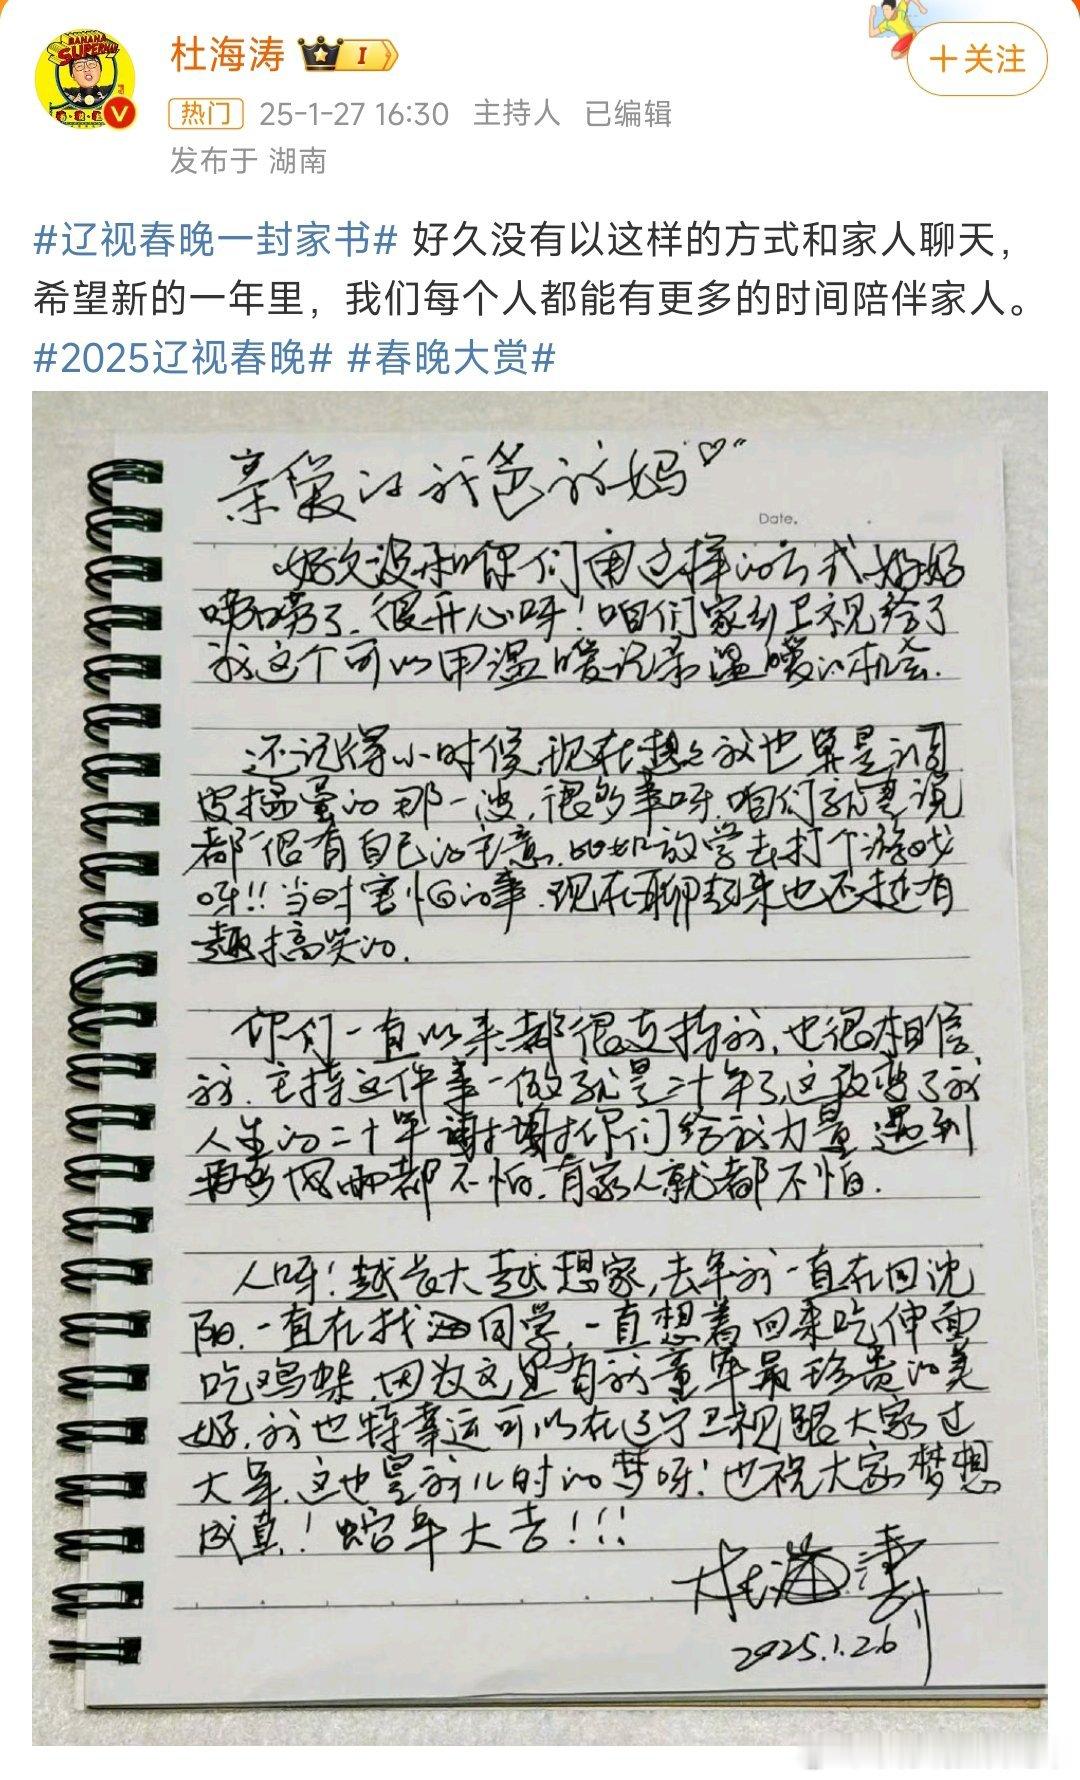 BANANA
SUPERMAN
杜海涛
I
+关注
热门 25-1-27 16:30 主持人 已编辑
发布于 湖南
#辽视春晚一封家书# 好久没有以这样的方式和家人聊天，
希望新的一年里，我们每个人都能有更多的时间陪伴家人。
#2025辽视春晚# #春晚大赏#
亲爱的我爸我妈
Date.
好久没和你们用这样的方式好好
唠唠了.很开心呀!咱们家到卫视给了
我这个可以用温暖说家温暖的机会.
还记得小时候,现在想想我也算是调
皮捣蛋的那一波,很多事呀,咱们就是说
都很有自己的主意.比如放学去打个游戏
呀!!当时害怕的事.现在聊起来也还挺有
趣搞笑的.
你们一直以来都很支持我,也很相信
我.主持这件事一做就是二十年了,这改变了我
人生的二十年谢谢你们给我力量 遇到
再多风雨都不怕.有家人就都不怕.
人呀!越长大越想家,去年我一直在回沈
阳.一直在找同学,一直想着回来吃伸面
吃鸡架,因为这里有我童年最珍贵的美
好.我也特幸运可以在辽宁卫视跟大家过
大年.这也是我儿时的梦呀!也祝大家梦想
成真!蛇年大吉!!!
杜海涛
2025.1.26